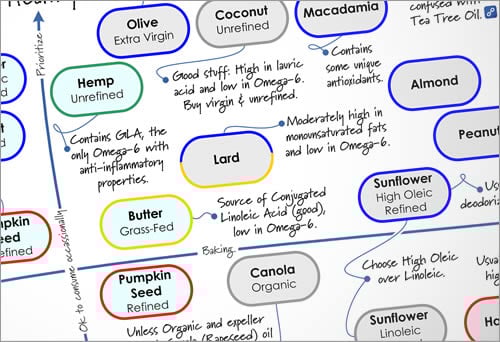 confused with
Tea Tree Oil.
Olive
Extra Virgin
Coconut
Unrefined
Macadamia
Prioritize
Hemp
Unrefined
Good stuff: High in lauric
acid and low in Omega-6.
Buy virgin & unrefined.
Contains
some unique
antioxidants.
Almond
Contains GLA, the
only Omega-6 with
anti-inflammatory
properties.
Lard
Moderately high in
monounsaturated fats
and low in Omega-6.
Butter
Grass-Fed
Source of Conjugated
Linoleic Acid (good),
low in Omega-6.
Sunflower
High Oleic
Refined
OK to consume occassionally
Baking
Pumpkin
Seed
Refined
Canola
Organic
Choose High Oleic
over Linoleic.
Unless Organic and expeller
(Rapeseed) oil
Sunflower
Linoleic